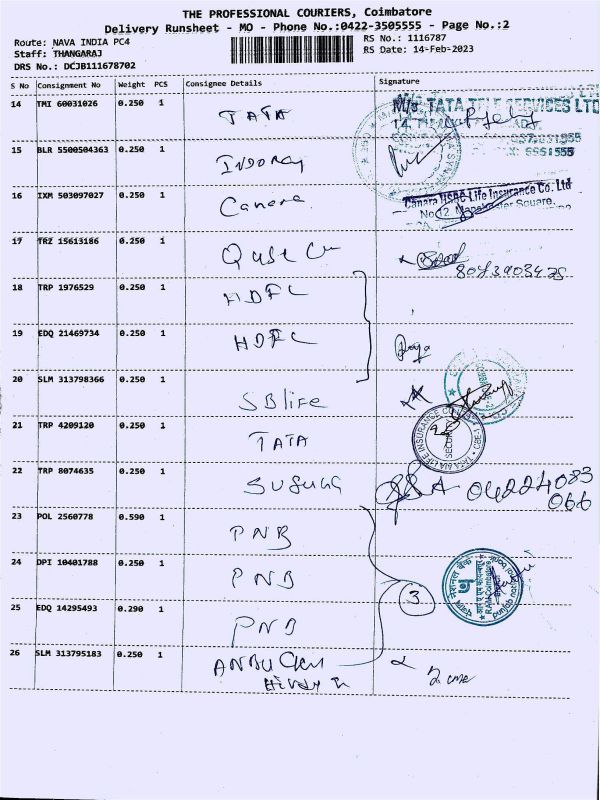 THE PROFESSIONAL COURIERS, Coimbatore
Delivery Runsheet - MO - Phone No.:0422-3505555 - Page No.:2
Route: NAVA INDIA PC4
RS No.: 1116787
Staff: THANGARAJ
RS Date: 14-Feb-2023
DRS No.: DCJB111678702
S No Consignment No Weight PCS Consignee Details Signature
14 TMI 60031026 0.250 1 TATA
M/s TATA TELE SERVICES LTD
15 BLR 5500504363 0.250 1
16 IXM 503097027 0.250 1 Canara
Canara HSBC Life Insurance Co. Ltd
No.12, Manchester Square,
17 TRZ 15613186 0.250 1
18 TRP 1976529 0.250 1 HDFC
19 EDQ 21469734 0.250 1 HDFC
20 SLM 313798366 0.250 1 SBlife
21 TRP 4209120 0.250 1 TATA
TATA AIA LIFE INSURANCE
22 TRP 8074635 0.250 1
04224083
066
23 POL 2560778 0.590 1 PNB
24 DPI 10401788 0.250 1 PNB
3
25 EDQ 14295493 0.290 1 PNB
26 SLM 313795183 0.250 1